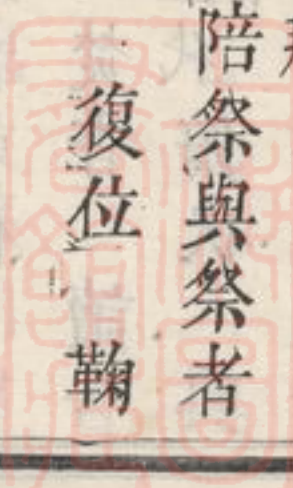 陪祭與祭者
復位　鞠